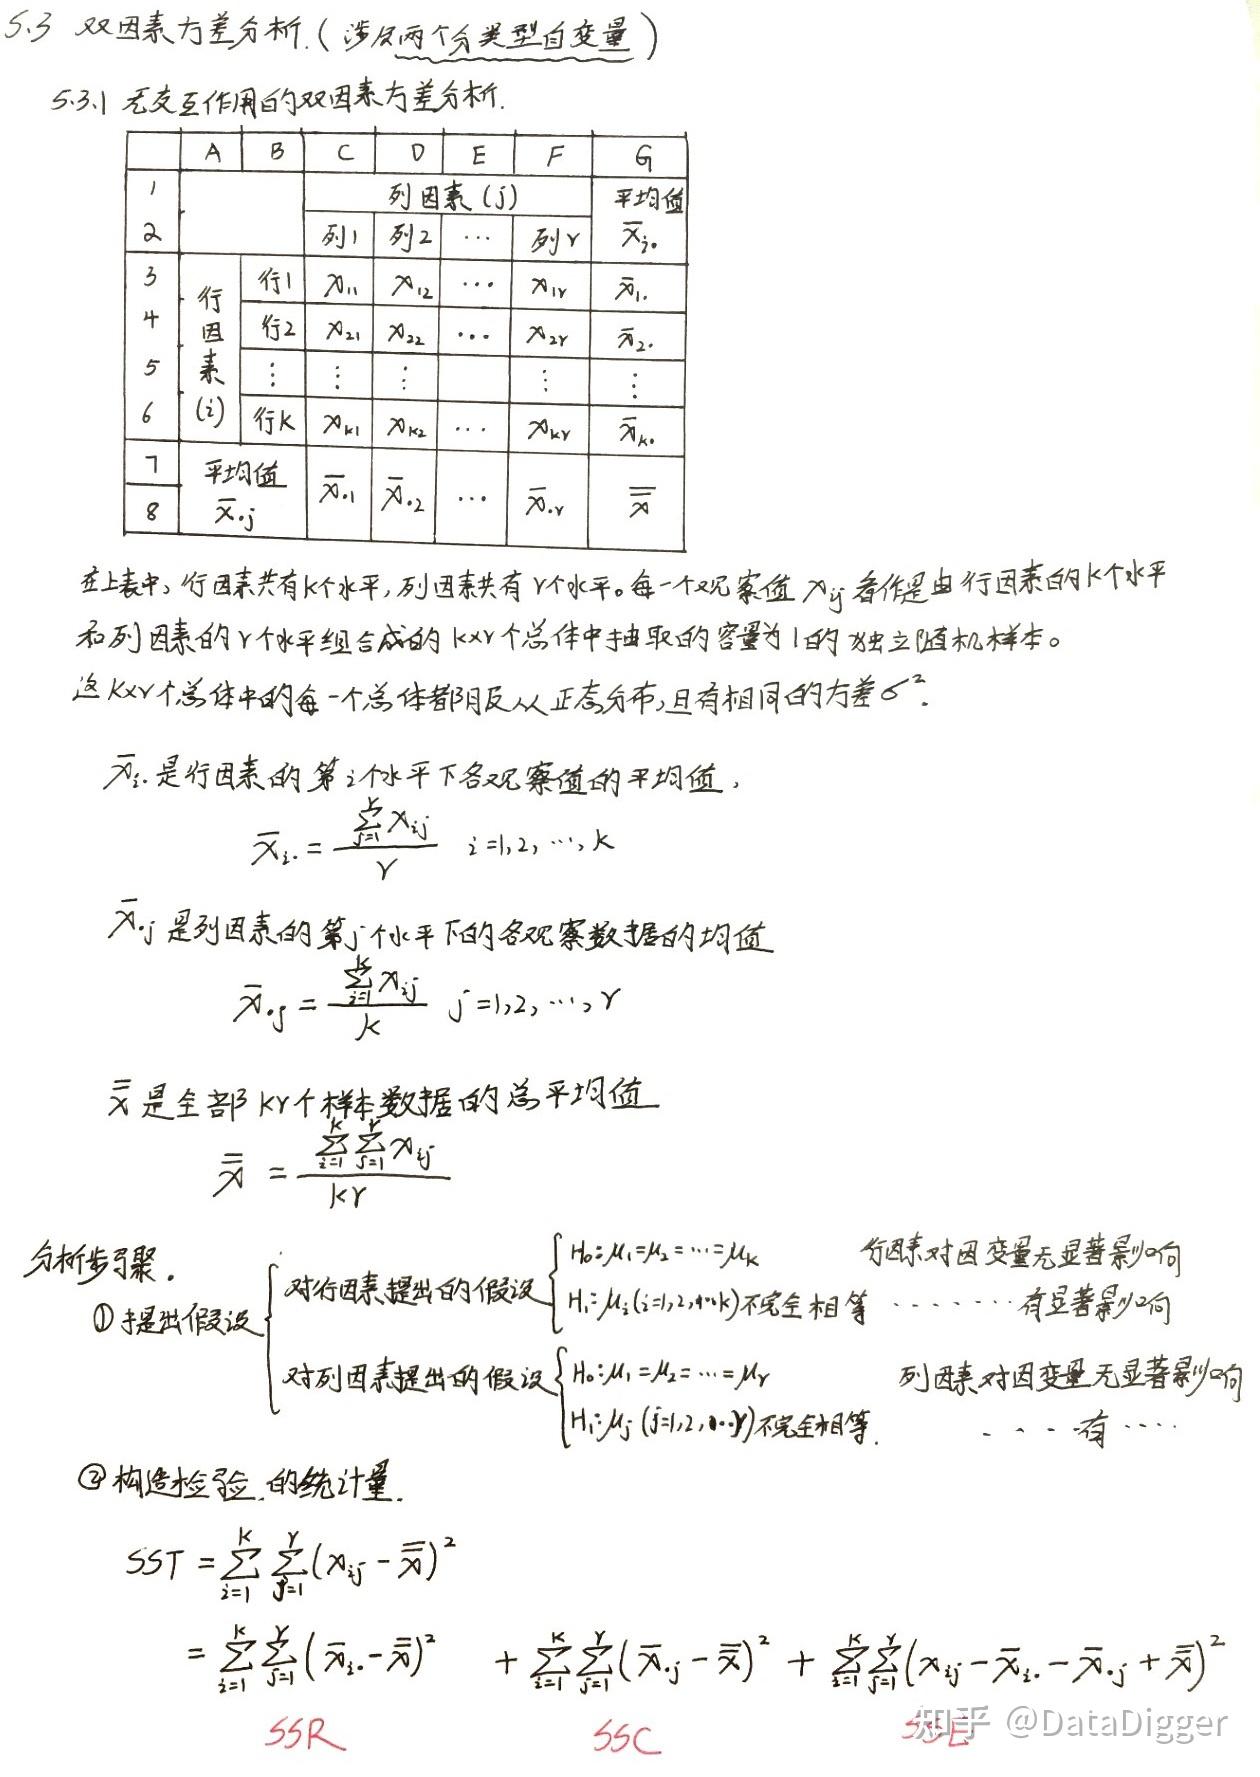 5.3 双因素方差分析.(涉及两个分类型自变量)
5.3.1 无交互作用的双因素方差分析.
A B C D E F G
1 列因素(j) 平均值
2 列1 列2 … 列r x̄i.
3 行1 x11 x12 … x1r x̄1.
4 行因素(i) 行2 x21 x22 … x2r x̄2.
5 ⋮ ⋮ ⋮ ⋮ ⋮
6 行k xk1 xk2 … xkr x̄k.
7 平均值 x̄.1 x̄.2 … x̄.r x̿
8 x̄.j
在上表中,行因素共有k个水平,列因素共有r个水平。每一个观察值 xij 看作是由行因素的k个水平
和列因素的r个水平组合成的 k×r个总体中抽取的容量为1的独立随机样本。
这k×r个总体中的每一个总体都服从正态分布,且有相同的方差σ².
x̄i. 是行因素的第i个水平下各观察值的平均值,
x̄i. = ∑(j=1→r) xij / r i=1,2,…,k
x̄.j 是列因素的第j个水平下的各观察数据的均值
x̄.j = ∑(i=1→k) xij / k j=1,2,…,r
x̿ 是全部kr个样本数据的总平均值
x̿ = ∑(i=1→k) ∑(j=1→r) xij / kr
分析步骤.
①提出假设
对行因素提出的假设 H₀:μ₁=μ₂=…=μk 行因素对因变量无显著影响
H₁:μi(i=1,2,…k)不完全相等 ……… 有显著影响
对列因素提出的假设 H₀:μ₁=μ₂=…=μr 列因素对因变量无显著影响
H₁:μj(j=1,2,…r)不完全相等. ….有….
②构造检验的统计量.
SST = ∑(i=1→k) ∑(j=1→r) (xij - x̿)²
= ∑(i=1→k) ∑(j=1→r) (x̄i. - x̿)² + ∑(i=1→k) ∑(j=1→r) (x̄.j - x̿)² + ∑(i=1→k) ∑(j=1→r) (xij - x̄i. - x̄.j + x̿)²
SSR SSC SSE
知乎 @DataDigger